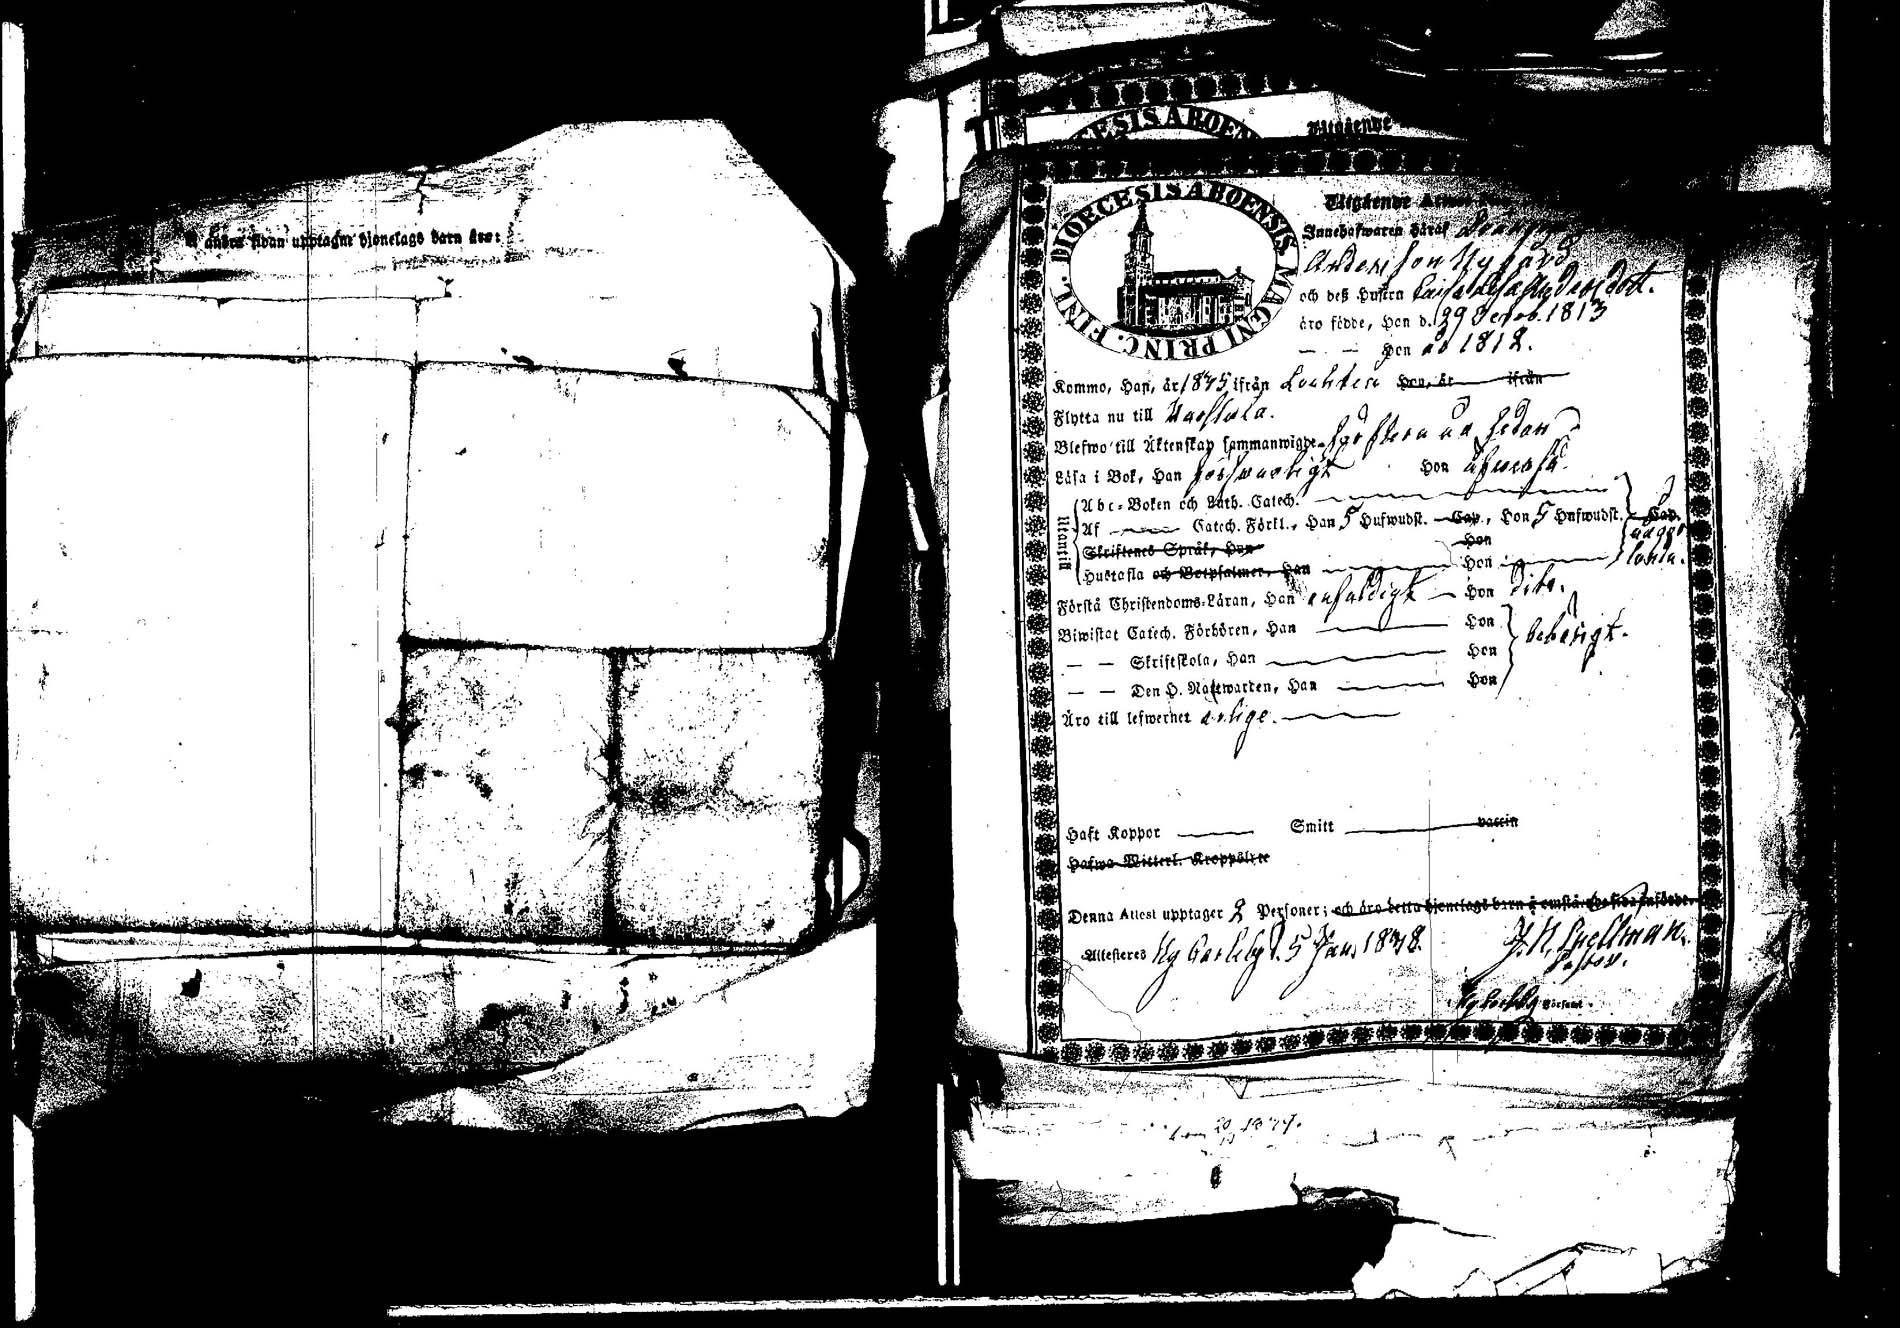 å andra sidan upptagne hjonelags barn äro:
DIOECESIS ABOEN
Utgående
DIOECESIS ABOENSIS MAGNI PRINC. FINL.
Utgående
Innehafwaren häraf
Andersson Nygård
och deß Hustru Caisa Andersdott.
äro födde, Han d. 29 1813
— — Hon år 1812.
Kommo, Han, år 1845 ifrån Lochteå Hon, år ifrån
Flytta nu till
Blefwo till Äktenskap sammanwigde för flera år sedan
Läsa i Bok, Han försvarligt Hon äfwenså.
Utantill
Abc-Boken och Luth. Catech.
Af Catech. Förkl., Han 5 Hufwudst. Cap., Hon 5 Hufwudst. Cap.
Skriftenes Språk, Han Hon
Hustafla och Botpsalmer, Han Hon
Förstå Christendoms-Läran, Han enfaldigt Hon dito.
Biwistat Catech. Förhören, Han Hon
— — Skriftskola, Han Hon behörigt.
— — Den H. Nattwarden, Han Hon
Äro till lefwernet ärlige.
Haft Koppor Smitt vaccin
Hafwa Witterl. Kroppslyte
Denna Attest upptager 2 Personer; och äro detta hjonelags barn å omstående sida införde.
Attesteras Ny Carleby d. 5 Jan. 1848. J. N. Snellman.
Pastor.